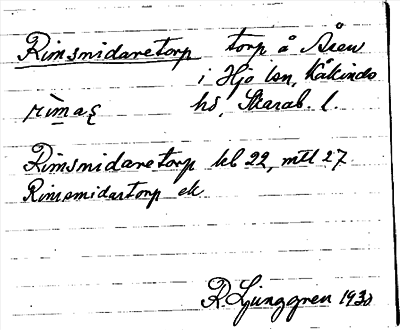 Rimsmidaretorp torp å Åsen
i Hjo lsn, Kåkinds
hd, Skarab. l.
Rimsmidaretorp kb 22, mtl 27
Rimsmidartorp ek
R Ljunggren 1930